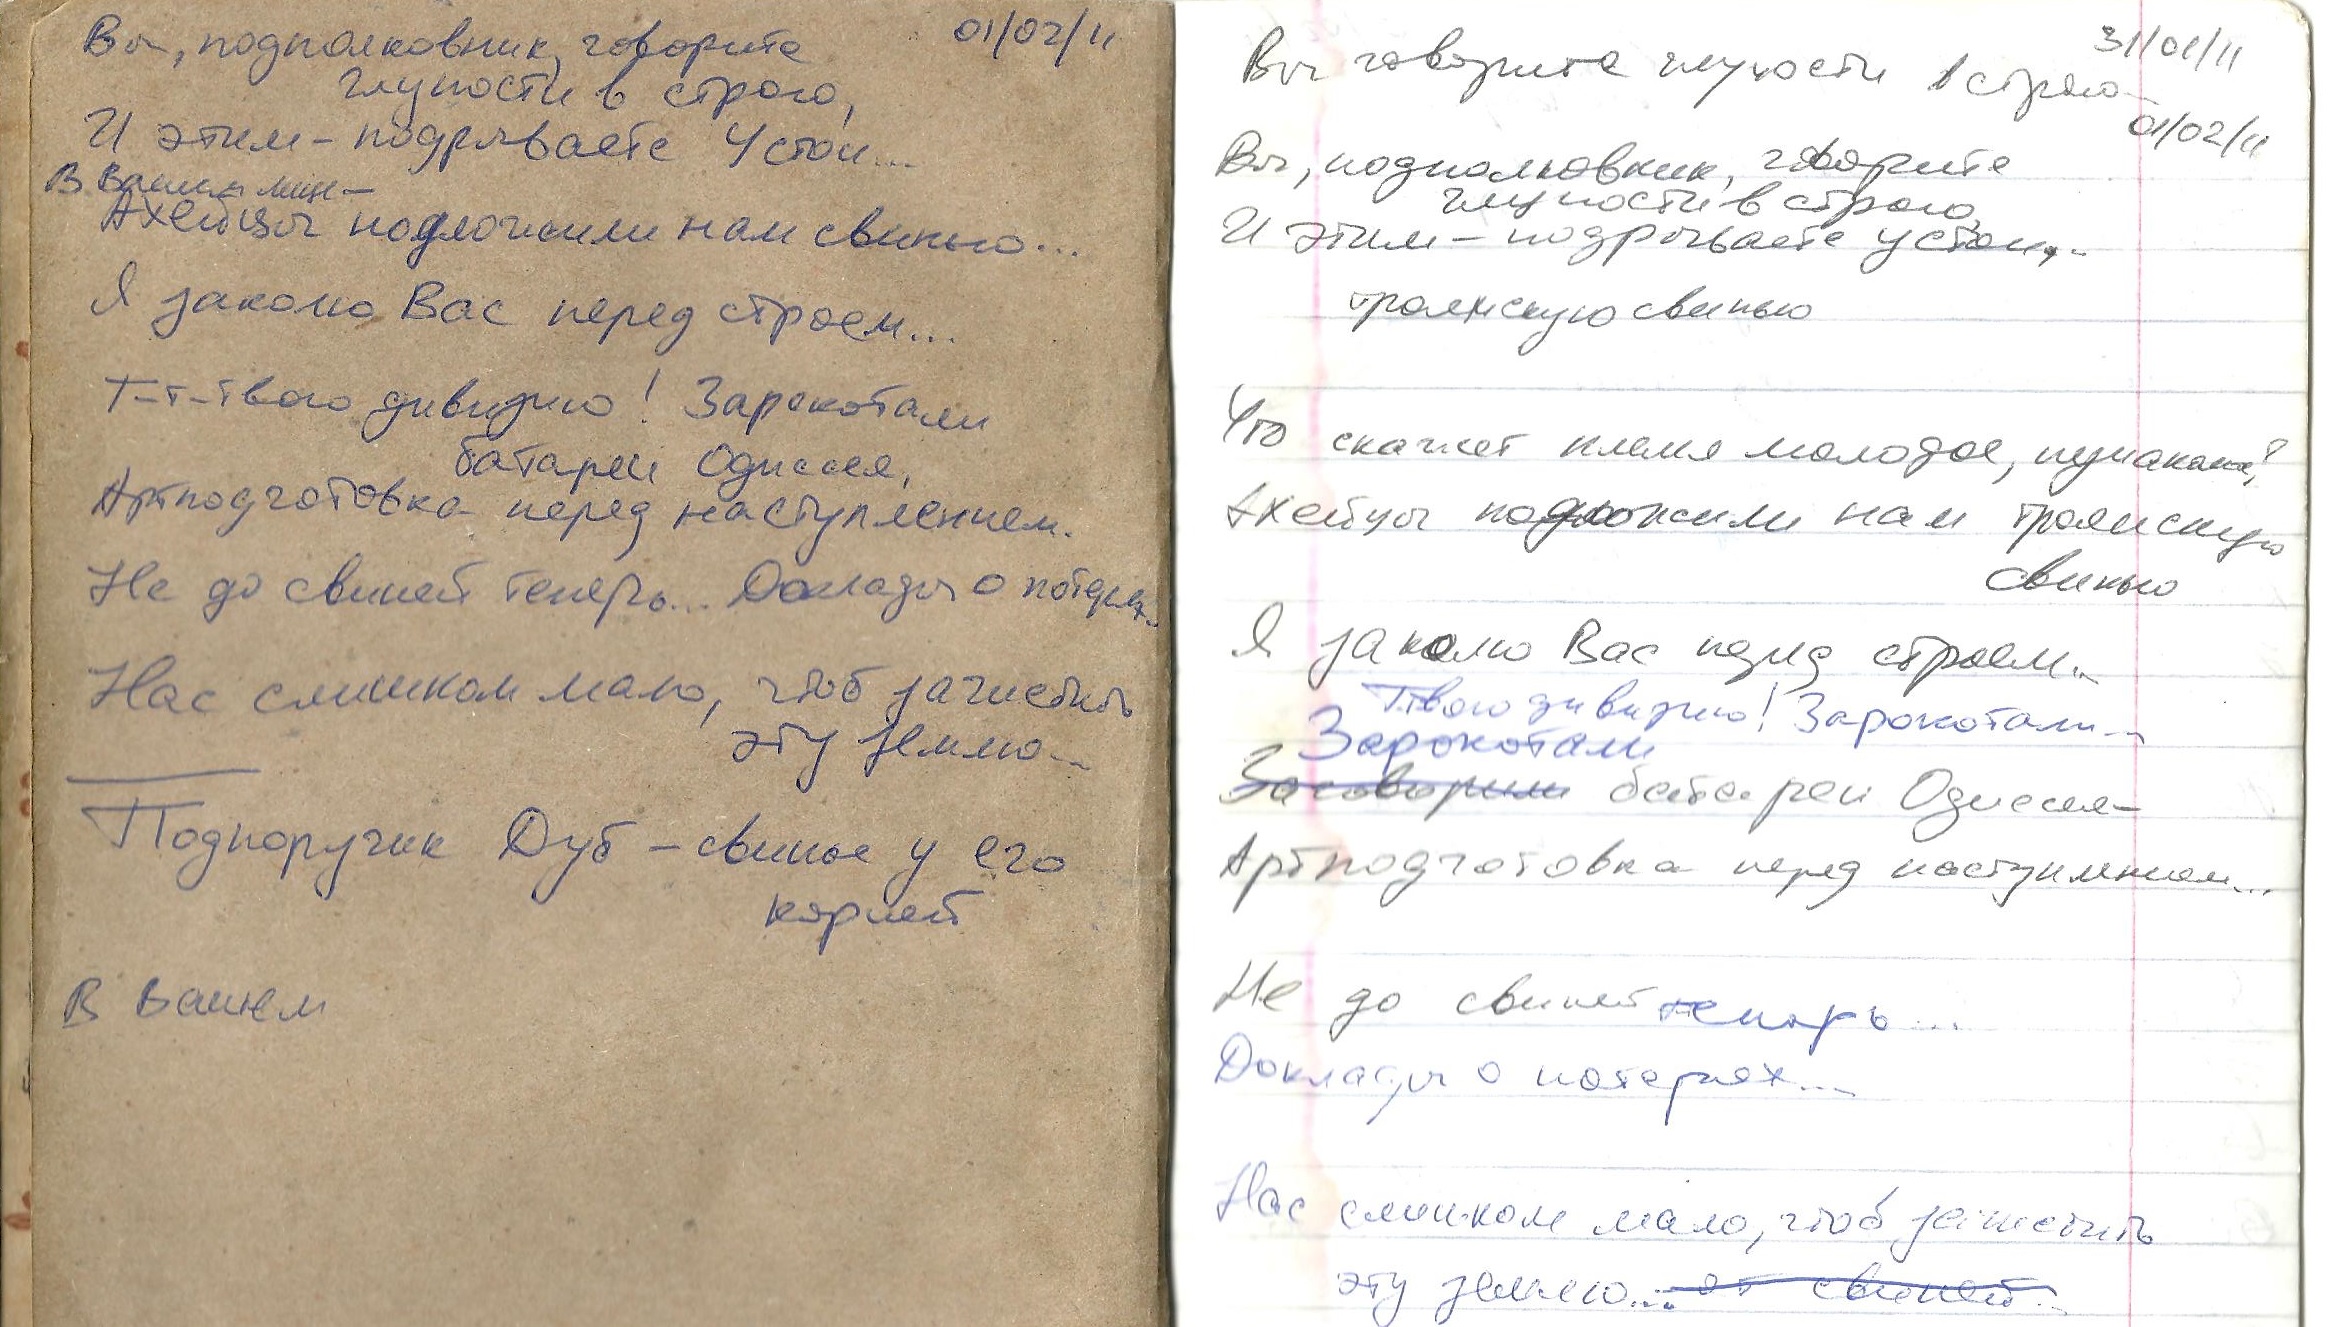 01/02/11
Вы, подполковник, говорите
глупости в строю,
И этим – подрываете Устои...
В Вашем лице –
Ахейцы подложили нам свинью...
Я заколю Вас перед строем...
Т-т-твою дивизию! Зарокотали
батареи Одиссея,
Артподготовка перед наступлением.
Не до свиней теперь... Доклады о потерях...
Нас слишком мало, чтоб зачистить
эту землю...
Подпоручик Дуб – свинье у его
корней
В Вашем
31/01/11
Вы говорите глупости в строю
01/02/11
Вы, подполковник, говорите
глупости в строю,
И этим – подрываете устои...
троянскую свинью
Что скажет племя молодое,
Ахейцы подложили нам троянскую
свинью
Я заколю Вас перед строем...
Т-твою дивизию! Зарокотали...
Зарокотали
Заговорили батареи Одиссея –
Артподготовка перед наступлением...
Не до свиней теперь...
Доклады о потерях...
Нас слишком мало, чтоб зачистить
эту землю... от свиней...